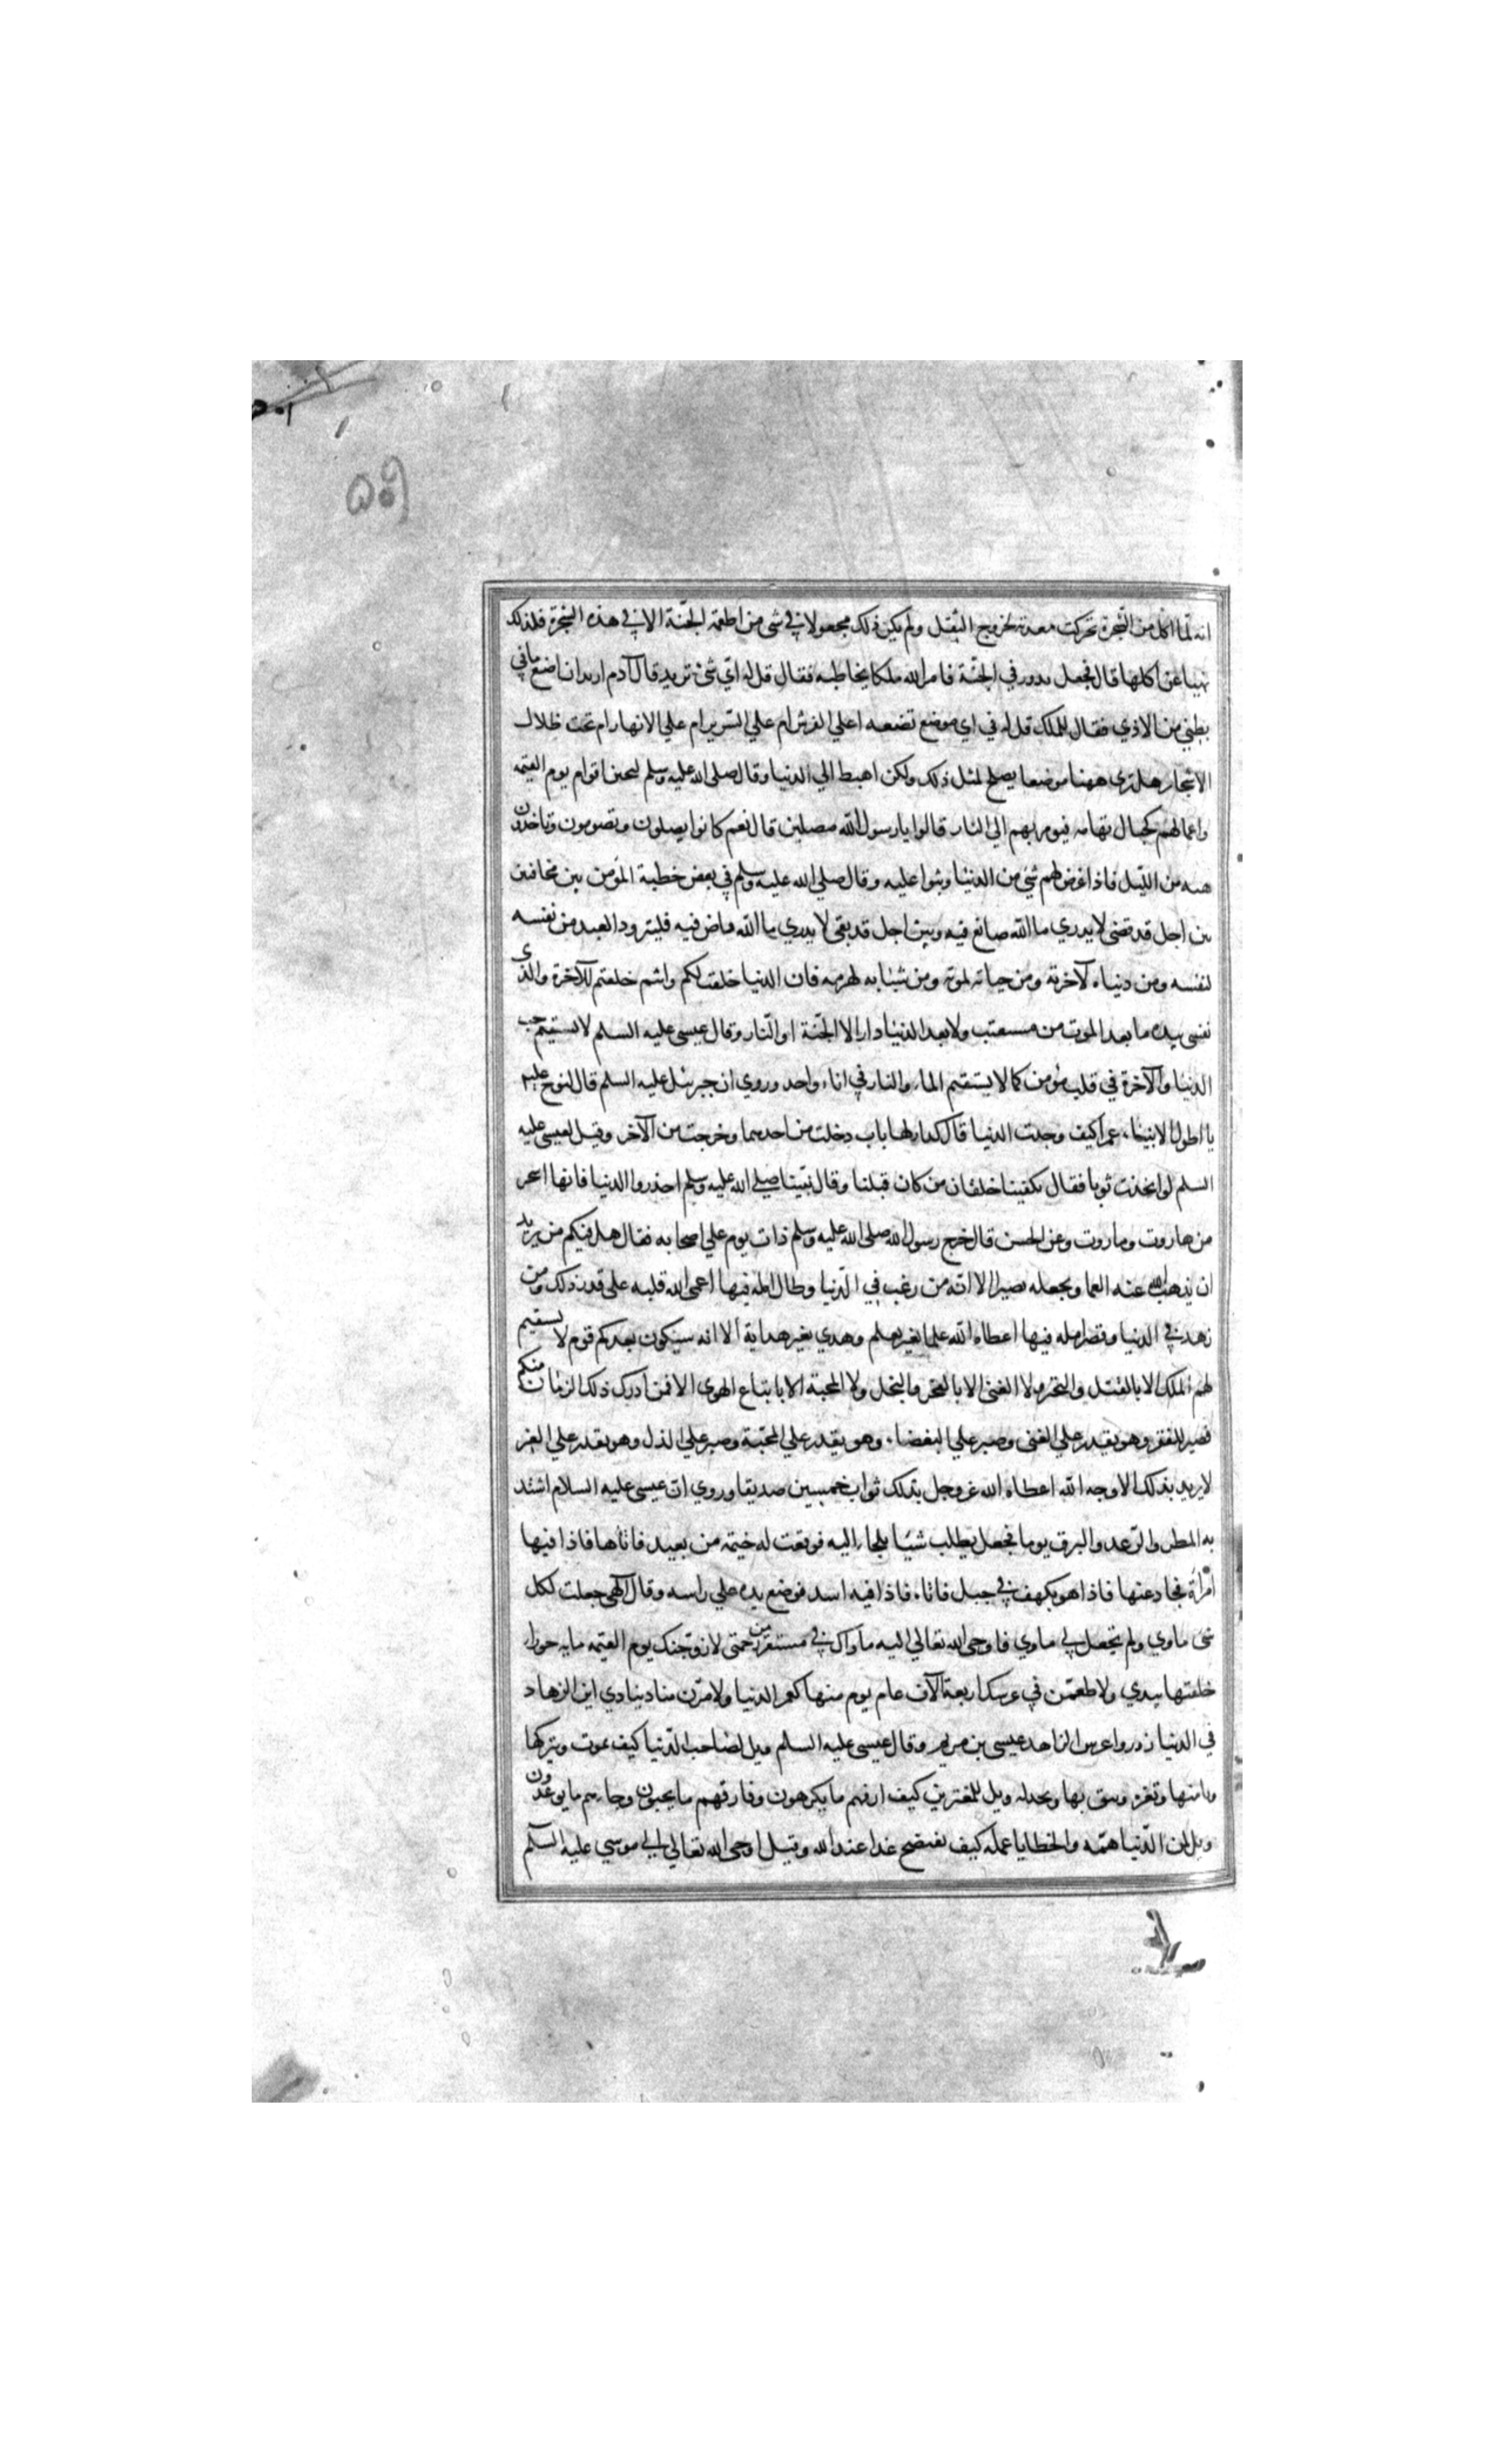 انه لما اكل من الشجرة تحركت معدته لخروج الثفل ولم يكن ذلك مجعولا في شئ من اطعمة الجنة الا في هذه الشجرة فلذلك
نهيا عن اكلها قال فجعل يدور في الجنة فامر الله ملكا يخاطبه فقال قل له اي شئ تريد قال آدم اريد ان اضع ما في
بطني من الاذي فقال للملك قل له في اي موضع تضعه اعلي الفرش ام علي السرير ام علي الانهار ام تحت ظلال
الاشجار هل تري ههنا موضعا يصلح لمثل ذلك ولكن اهبط الي الدنيا وقال صلى الله عليه وسلم ليجئن اقوام يوم القيمه
واعمالهم كجبال تهامه فيومر بهم الي النار قالوا يا رسول الله مصلين قال نعم كانوا يصلون ويصومون وياخذون
هنه من الليل فاذا عرض لهم شئ من الدنيا وثبوا عليه وقال صلي الله عليه وسلم في بعض خطبه المؤمن بين مخافتين
بين اجل قد مضى لا يدري ما الله صانع فيه وبين اجل قد بقى لا يدري ما الله قاض فيه فليتزود العبد من نفسه
لنفسه ومن دنياه لآخرته ومن حياته لموته ومن شبابه لهرمه فان الدنيا خلقت لكم وانتم خلقتم للآخرة والذى
نفسى بيده ما بعد الموت من مستعتب ولا بعد الدنيا دار الا الجنة او النار وقال عيسى عليه السلم لا يستقيم حب
الدنيا والآخرة في قلب مؤمن كما لا يستقيم الماء والنار في اناء واحد وروي ان جبرئيل عليه السلم قال لنوح عليه
يا اطول الانبياء عمرا كيف وجدت الدنيا قال كدار لها باب دخلت من احدهما وخرجت من الآخر وقيل لعيسى عليه
السلم لو اتخذت ثوبا فقال يكفينا خلقان من كان قبلنا وقال نبينا صلي الله عليه وسلم احذروا الدنيا فانها اسحر
من هاروت وماروت وعن الحسن قال خرج رسول الله صلى الله عليه وسلم ذات يوم علي اصحابه فقال هل فيكم من يريد
ان يذهب الله عنه العما ويجعله بصيرا الا انه من رغب في الدنيا وطال امله فيها اعمى الله قلبه على قدر ذلك ومن
زهد في الدنيا وقصر امله فيها اعطاه الله علما بغير تعلم وهدي بغير هداية الا انه سيكون بعدكم قوم لا يستقيم
لهم الملك الا بالقتل والتجبر ولا الغنى الا بالفخر والبخل ولا المحبة الا باتباع الهوى الا فمن ادرك ذلك الزمان منكم
فصبر للفقر وهو يقدر علي الغنى وصبر علي البغضاء وهو يقدر علي المحبة وصبر علي الذل وهو يقدر علي العز
لا يريد بذلك الا وجه الله اعطاه الله عز وجل بذلك ثواب خمسين صديقا وروي ان عيسى عليه السلام اشتد
به المطر والرعد والبرق يوما فجعل يطلب شيئا يلجاء اليه فوقعت له خيمه من بعيد فاتاها فاذا فيها
امراة فحاد عنها فاذا هو بكهف في جبل فاتاه فاذا فيه اسد فوضع يده علي راسه وقال الهى جعلت لكل
شئ ماوي ولم تجعل لي ماوي فاوحى الله تعالي اليه ماواك في مستقر من رحمتى لازوجنك يوم القيمه مايه حوراء
خلقتها بيدي ولاطعمن في عرسك اربعة آلاف عام يوم منها كعمر الدنيا ولامرن مناديا ينادي اين الزهاد
في الدنيا زوروا عرس الزاهد عيسى بن مريم وقال عيسى عليه السلم ويل لصاحب الدنيا كيف يموت ويتركها
ويامنها وتغره ويثق بها وتخذله ويل للمغترين كيف ارتهم ما يكرهون وفارقهم ما يحبون وجاءهم ما يوعدون
وويل لمن الدنيا همته والخطايا عمله كيف يفتضح غدا عند الله وقيل اوحى الله تعالي الي موسي عليه السلم